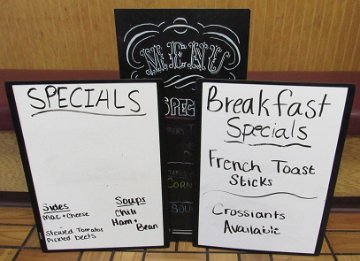 MENU
SPEC
CORN
SPECIALS
Sides
Mac + Cheese
Stewed Tomatos
Pickled beets
Soups
Chili
Ham +
Bean
Breakfast
Specials
French Toast
Sticks
Crossiants
Available